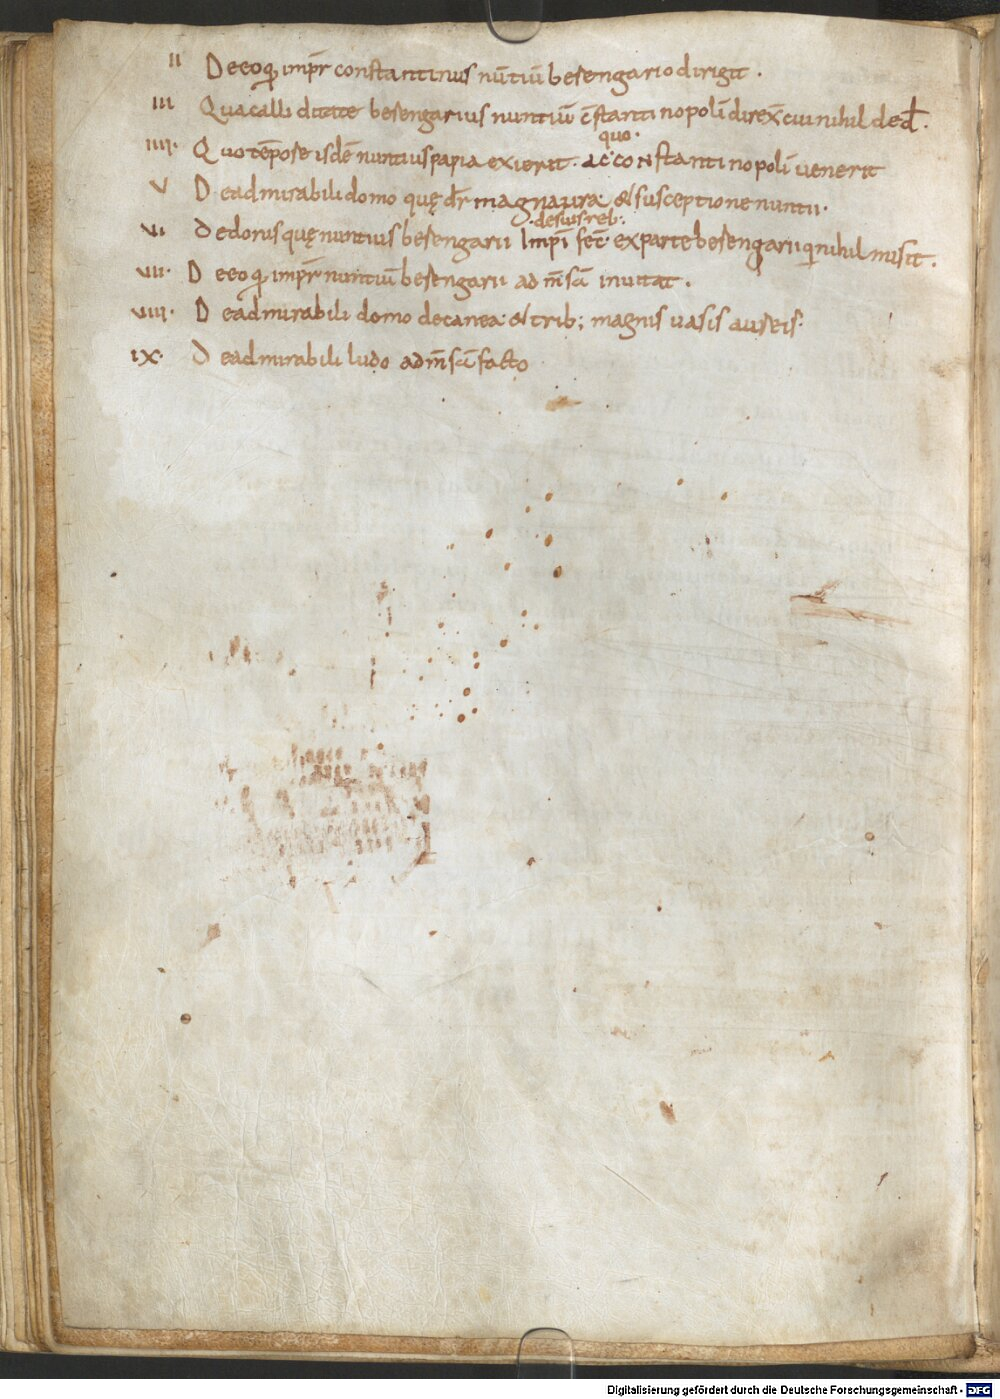 II De eo qd impr constantinus nūtiū berengario dirigit.
III Qua calliditate berengarius nuntiū cstantinopolī direx cui nihil ded.
IIII. Quo tēpore isdē nuntius papia exierit. ac quo. CONstantinopolī venerit
V De admirabili domo quę dr magnaura & susceptione nuntii.
VI De donis quę nuntius berengarii Impī de suis reb: fec. ex parte berengarii qui nihil misit.
VII. De eo qd impr nuntiū berengarii ad mēsā invitat.
VIII. De admirabili domo decanea & trib; magnis vasis aureis.
IX. De admirabili ludo ad mēsā facto
Digitalisierung gefördert durch die Deutsche Forschungsgemeinschaft - DFG